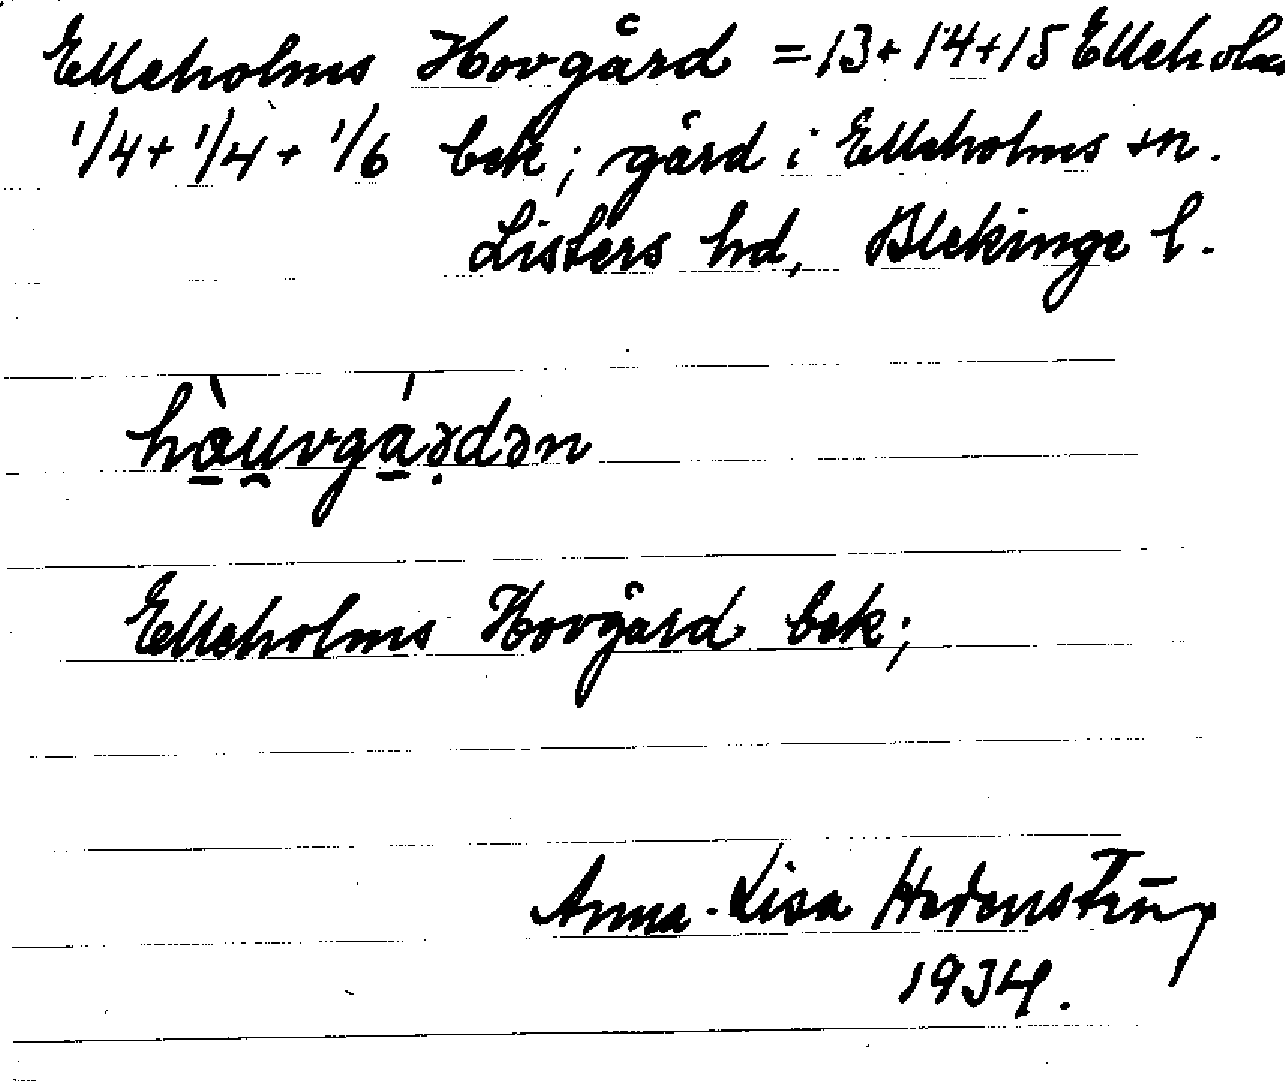 Elleholms Hovgård = 13+14+15 Elleholms
1/4 + 1/4 + 1/6 bek; gård i Elleholms sn.
Listers hd, Blekinge l.
hòu̯vgárdən
Elleholms Hovgård bek;
Anna-Lisa Hedenström
1934.